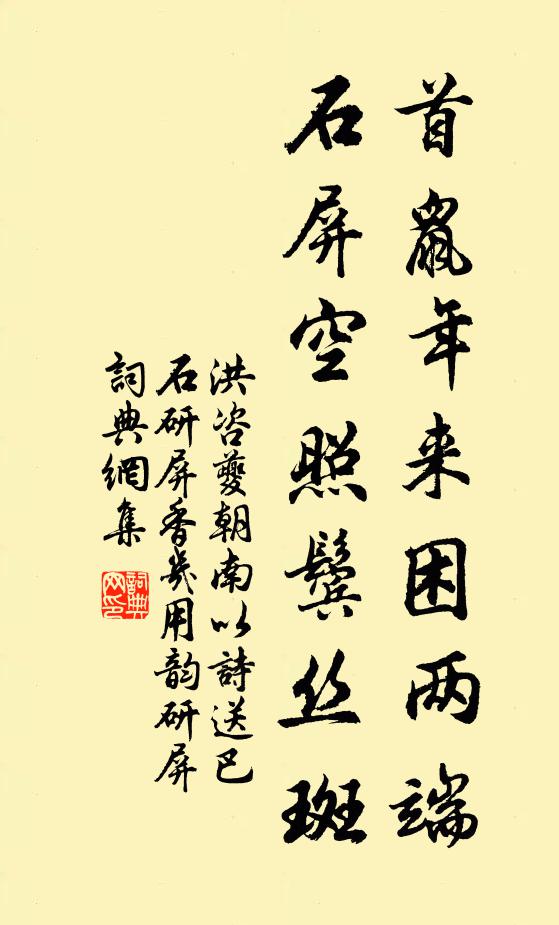 首鼠年来困两端
石屏空照鬓丝斑
洪咨夔朝南以詩送巴
石研屏香幾用韵研屏
詞典網集
詞典网印